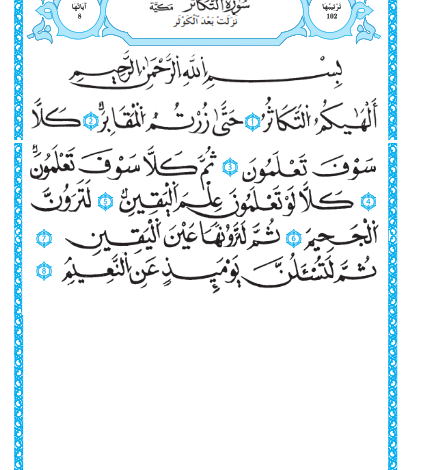 ترتيبها
102
سورة التكاثر مكية
نزلت بعد الكوثر
آياتها
8
بِسْمِ اللَّهِ الرَّحْمَٰنِ الرَّحِيمِ
أَلْهَيٰكُمُ التَّكَاثُرُ 1 حَتَّىٰ زُرْتُمُ الْمَقَابِرَ 2 كَلَّا
سَوْفَ تَعْلَمُونَ 3 ثُمَّ كَلَّا سَوْفَ تَعْلَمُونَ
4 كَلَّا لَوْ تَعْلَمُونَ عِلْمَ الْيَقِينِ 5 لَتَرَوُنَّ
الْجَحِيمَ 6 ثُمَّ لَتَرَوُنَّهَا عَيْنَ الْيَقِينِ 7
ثُمَّ لَتُسْـَٔلُنَّ يَوْمَئِذٍ عَنِ النَّعِيمِ 8